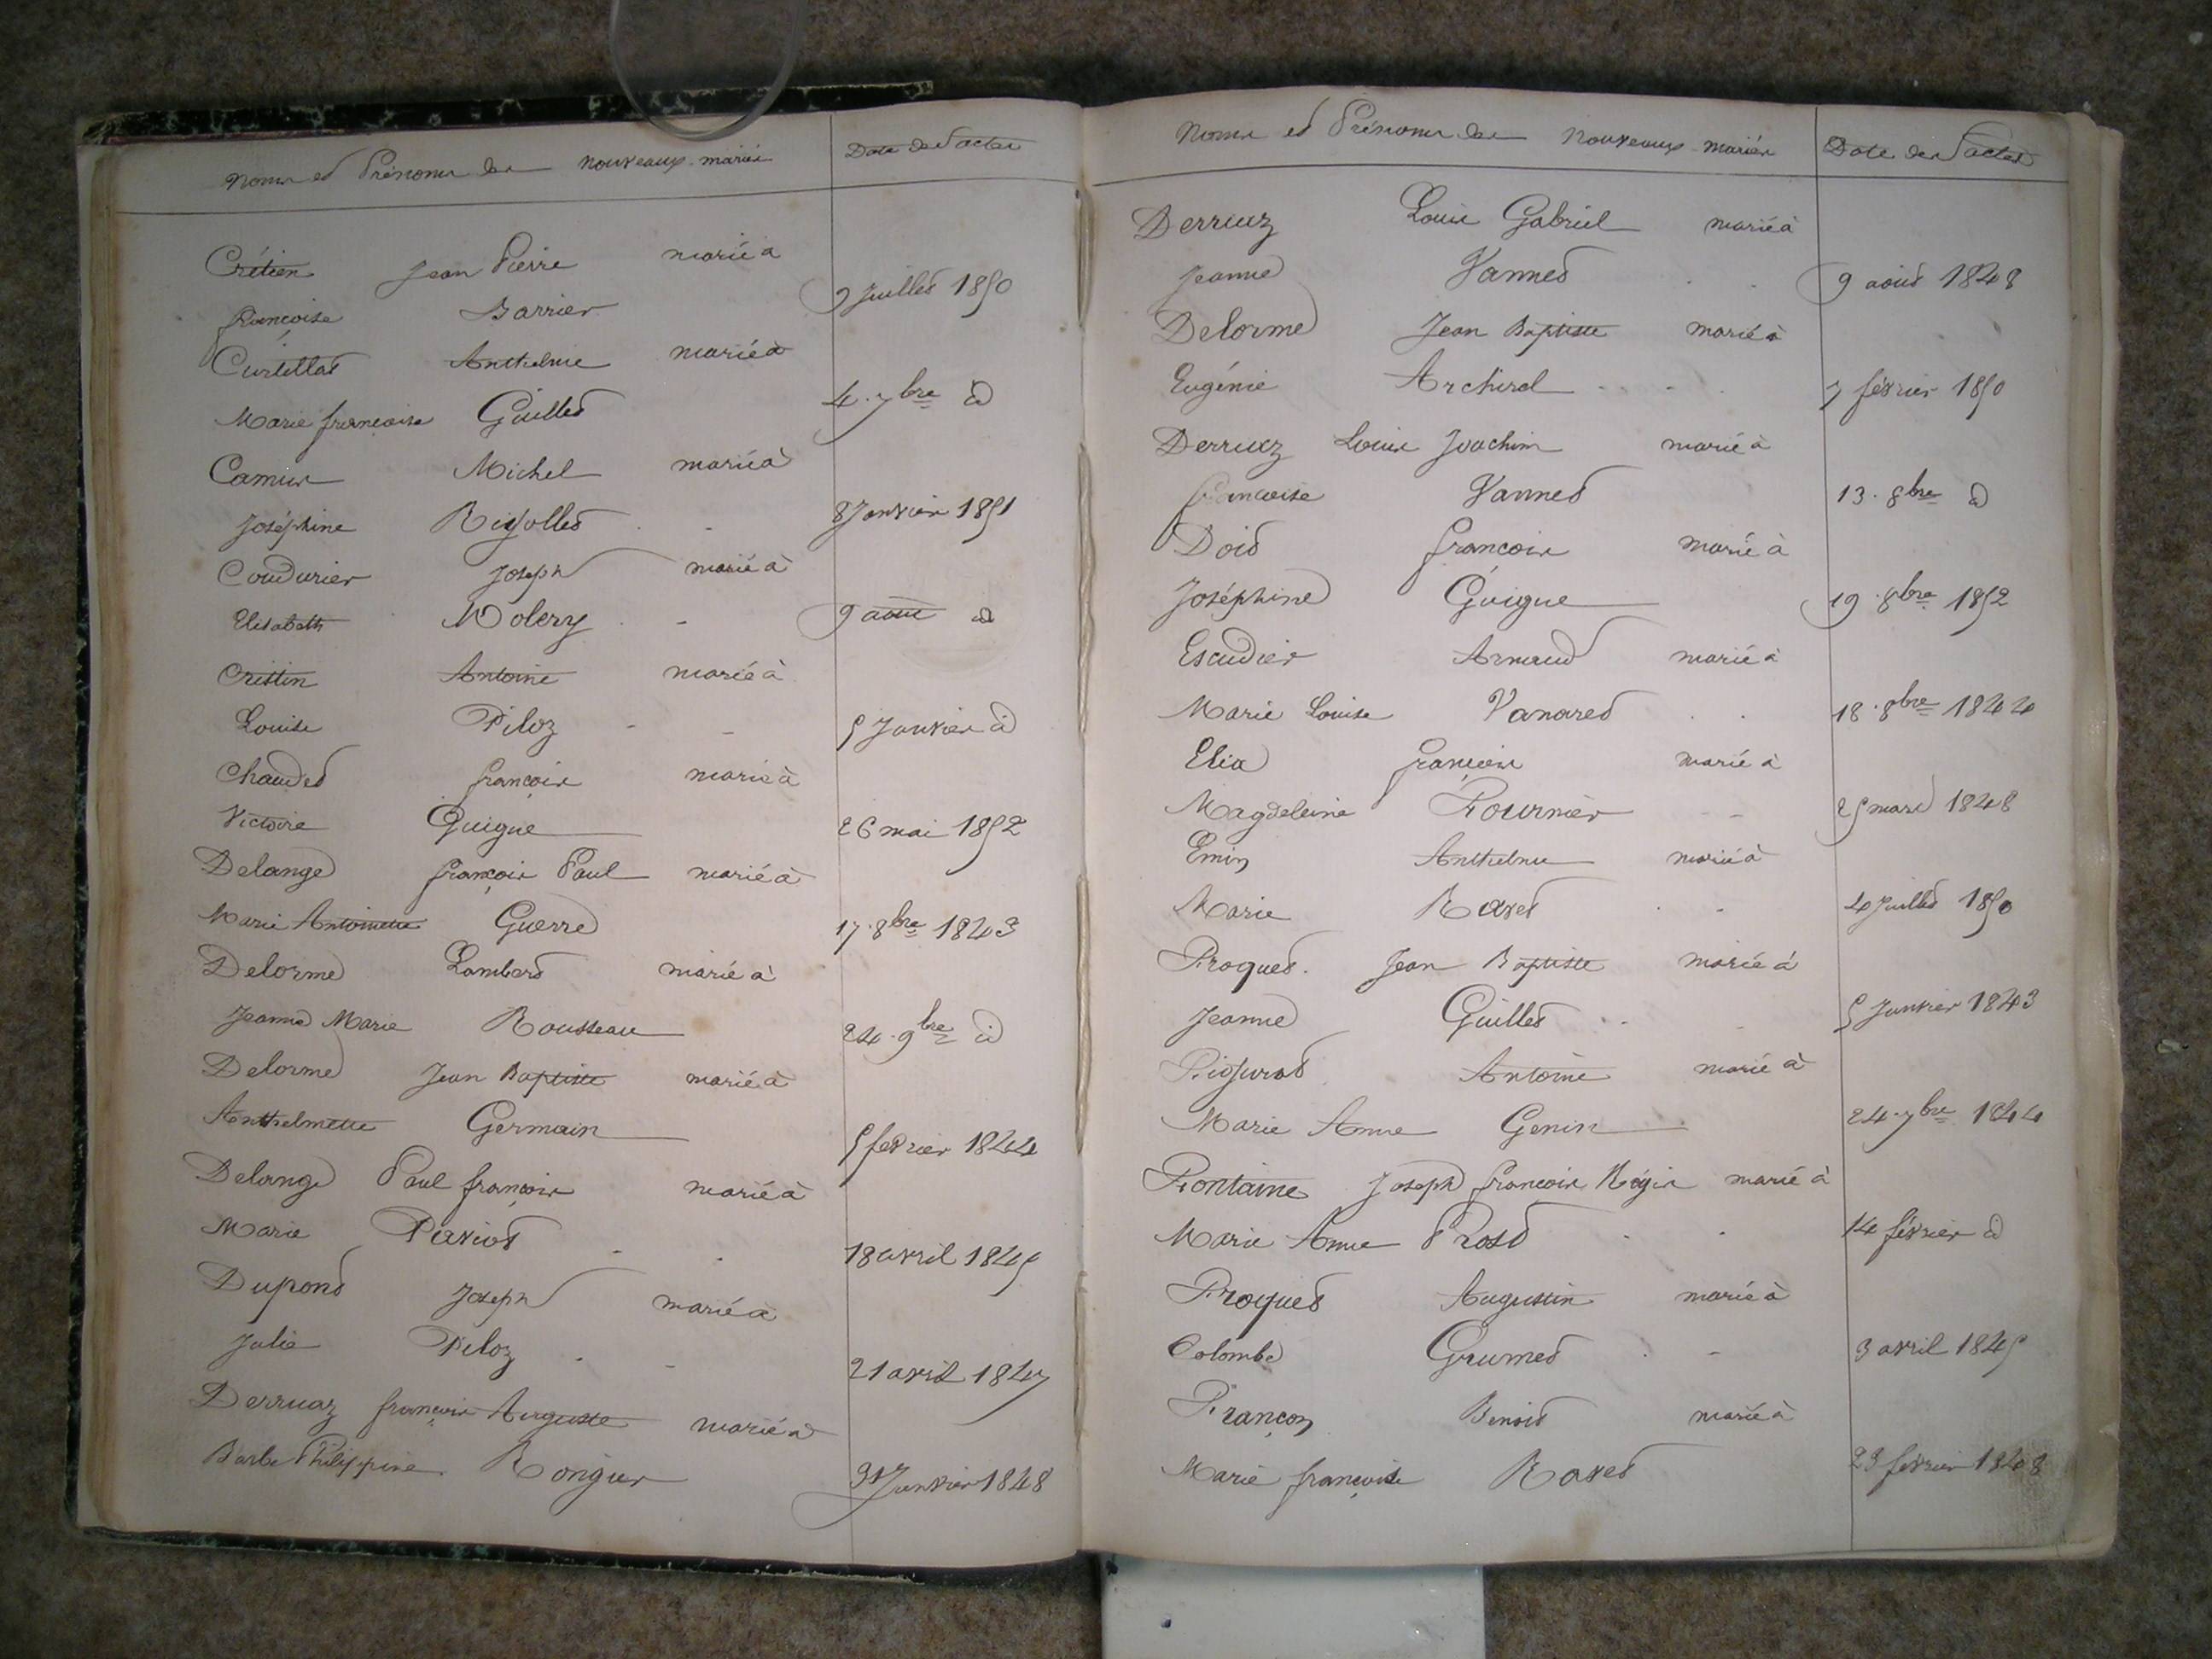 Noms et Prénoms des nouveaux mariés Date des actes
Crétien Jean Pierre marié à
françoise Barrier 9 Juillet 1850
Curtillat Anthelme marié à
Marie françoise Guillet 4 7bre id
Camus Michel marié à
Joséphine Rigollet 8 Janvier 1851
Coudurier Joseph marié à
Elisabeth Molery 9 aout id
Cristin Antoine marié à
Louise Piloz 5 Janvier id
Chaudet françois marié à
Victoire Guigue 26 mai 1852
Delange françois Paul marié à
Marie Antoinette Guerre 17. 8bre 1843
Delorme Lambert marié à
Jeanne Marie Rousseau 24. 9bre id
Delorme Jean Baptiste marié à
Anthelmette Germain 5 fevrier 1844
Delange Paul françois marié à
Marie Paviot 18 avril 1845
Dupont Joseph marié à
Julie Piloz 21 avril 1847
Derruaz françois Auguste marié à
Barbe Philippine Rongier 31 Janvier 1848
Noms et Prénoms des Nouveaux mariés Date des actes
Derruaz Louis Gabriel marié à
Jeanne Vannet 9 aout 1848
Delorme Jean Baptiste marié à
Eugénie Archirel 7 février 1850
Derruaz Louis Joachim marié à
francoise Vannet 13. 8bre id
Doit françois marié à
Joséphine Guigue 19. 8bre 1852
Escudier Arnaud marié à
Marie Louise Vanaret 18. 8bre 1844
Elia françois marié à
Magdeleine Fournier 25 mars 1848
Emin Anthelme marié à
Marie Ravet 4 Juillet 1850
Froquet. Jean Baptiste marié à
Jeanne Guillet 5 Janvier 1843
Antoine marié à
Marie Anne Genin 24. 7bre 1844
Fontaine Joseph françois Régis marié à
Marie Anne Prost 14 février id
Froquet Augustin marié à
Colombe Grumet 3 avril 1845
Françon Benoit marié à
Marie françoise Ravet 23 fevrier 1848